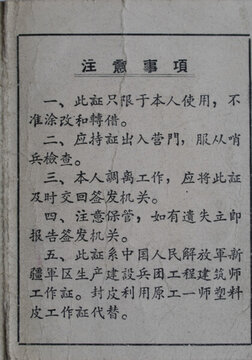 注意事項
一、此証只限于本人使用，不
准涂改和轉借。
二、应持証出入营門，服从哨
兵檢查。
三、本人調离工作，应将此証
及时交回签发机关。
四、注意保管，如有遺失立即
报告签发机关。
五、此証系中国人民解放軍新
疆軍区生产建設兵团工程建筑师
工作証。封皮利用原工一师塑料
皮工作証代替。